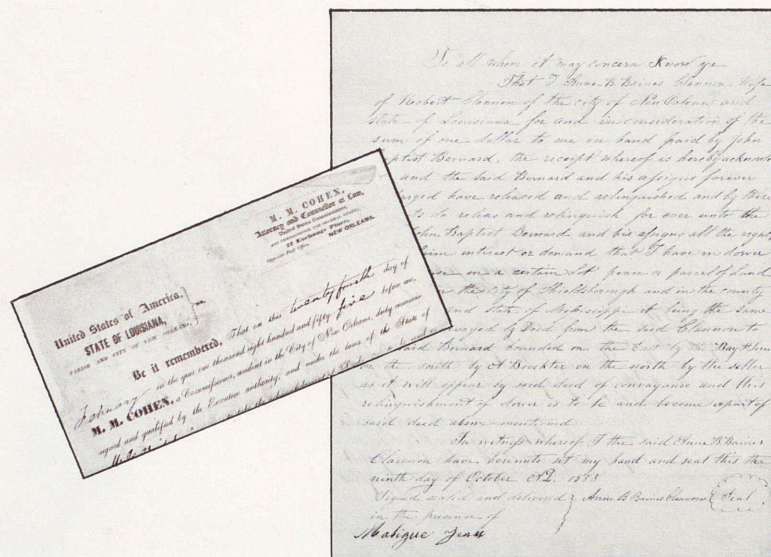 M. M. COHEN,
Attorney and Counsellor at Law,
United States Commissioner,
22 Exchange Place,
Opposite Post Office, NEW ORLEANS.
United States of America,
STATE OF LOUISIANA,
PARISH AND CITY OF NEW ORLEANS,
Be it remembered, That on this twenty fourth day of
January in the year one thousand eight hundred and fifty five before me,
M. M. COHEN, a Commissioner, resident in the City of New Orleans, duly commis-
signed and qualified by the Executive authority, and under the laws of the State of
To all whom it may concern Know ye
That I Anne B Baines Clannon Wife
of Robert Clannon of the city of New Orleans and
state of Louisiana for and in consideration of the
sum of one dollar to me in hand paid by John
aptist Bernard, the receipt whereof is hereby acknow
and the said Bernard and his assigns forever
have released and relinquished and by there
to do releas and relinquish for ever unto the
John Baptist Bernard and his assigns all the right
intrest or demand that I have in dower
in a certain Lot peace or parcel of Land
the city of Shieldsborough and in the county
and State of Mississippi it being the same
by Deed from the said Clannon to
said Bernard bounded on the East by the Bay
on the south by A Bookter on the north by the seller
as it will appear by said deed of conveyance and this
relinquishment of dower is to be and become apart of
said deed above mentioned
In witness whereof I the said Anne B Baines
Clannon have hereunto set my hand and seal this the
ninth day of October AD. 1853
Signed sealed and delivered } Anne B Baines Clannon Seal
in the presence of
Maligue Jean